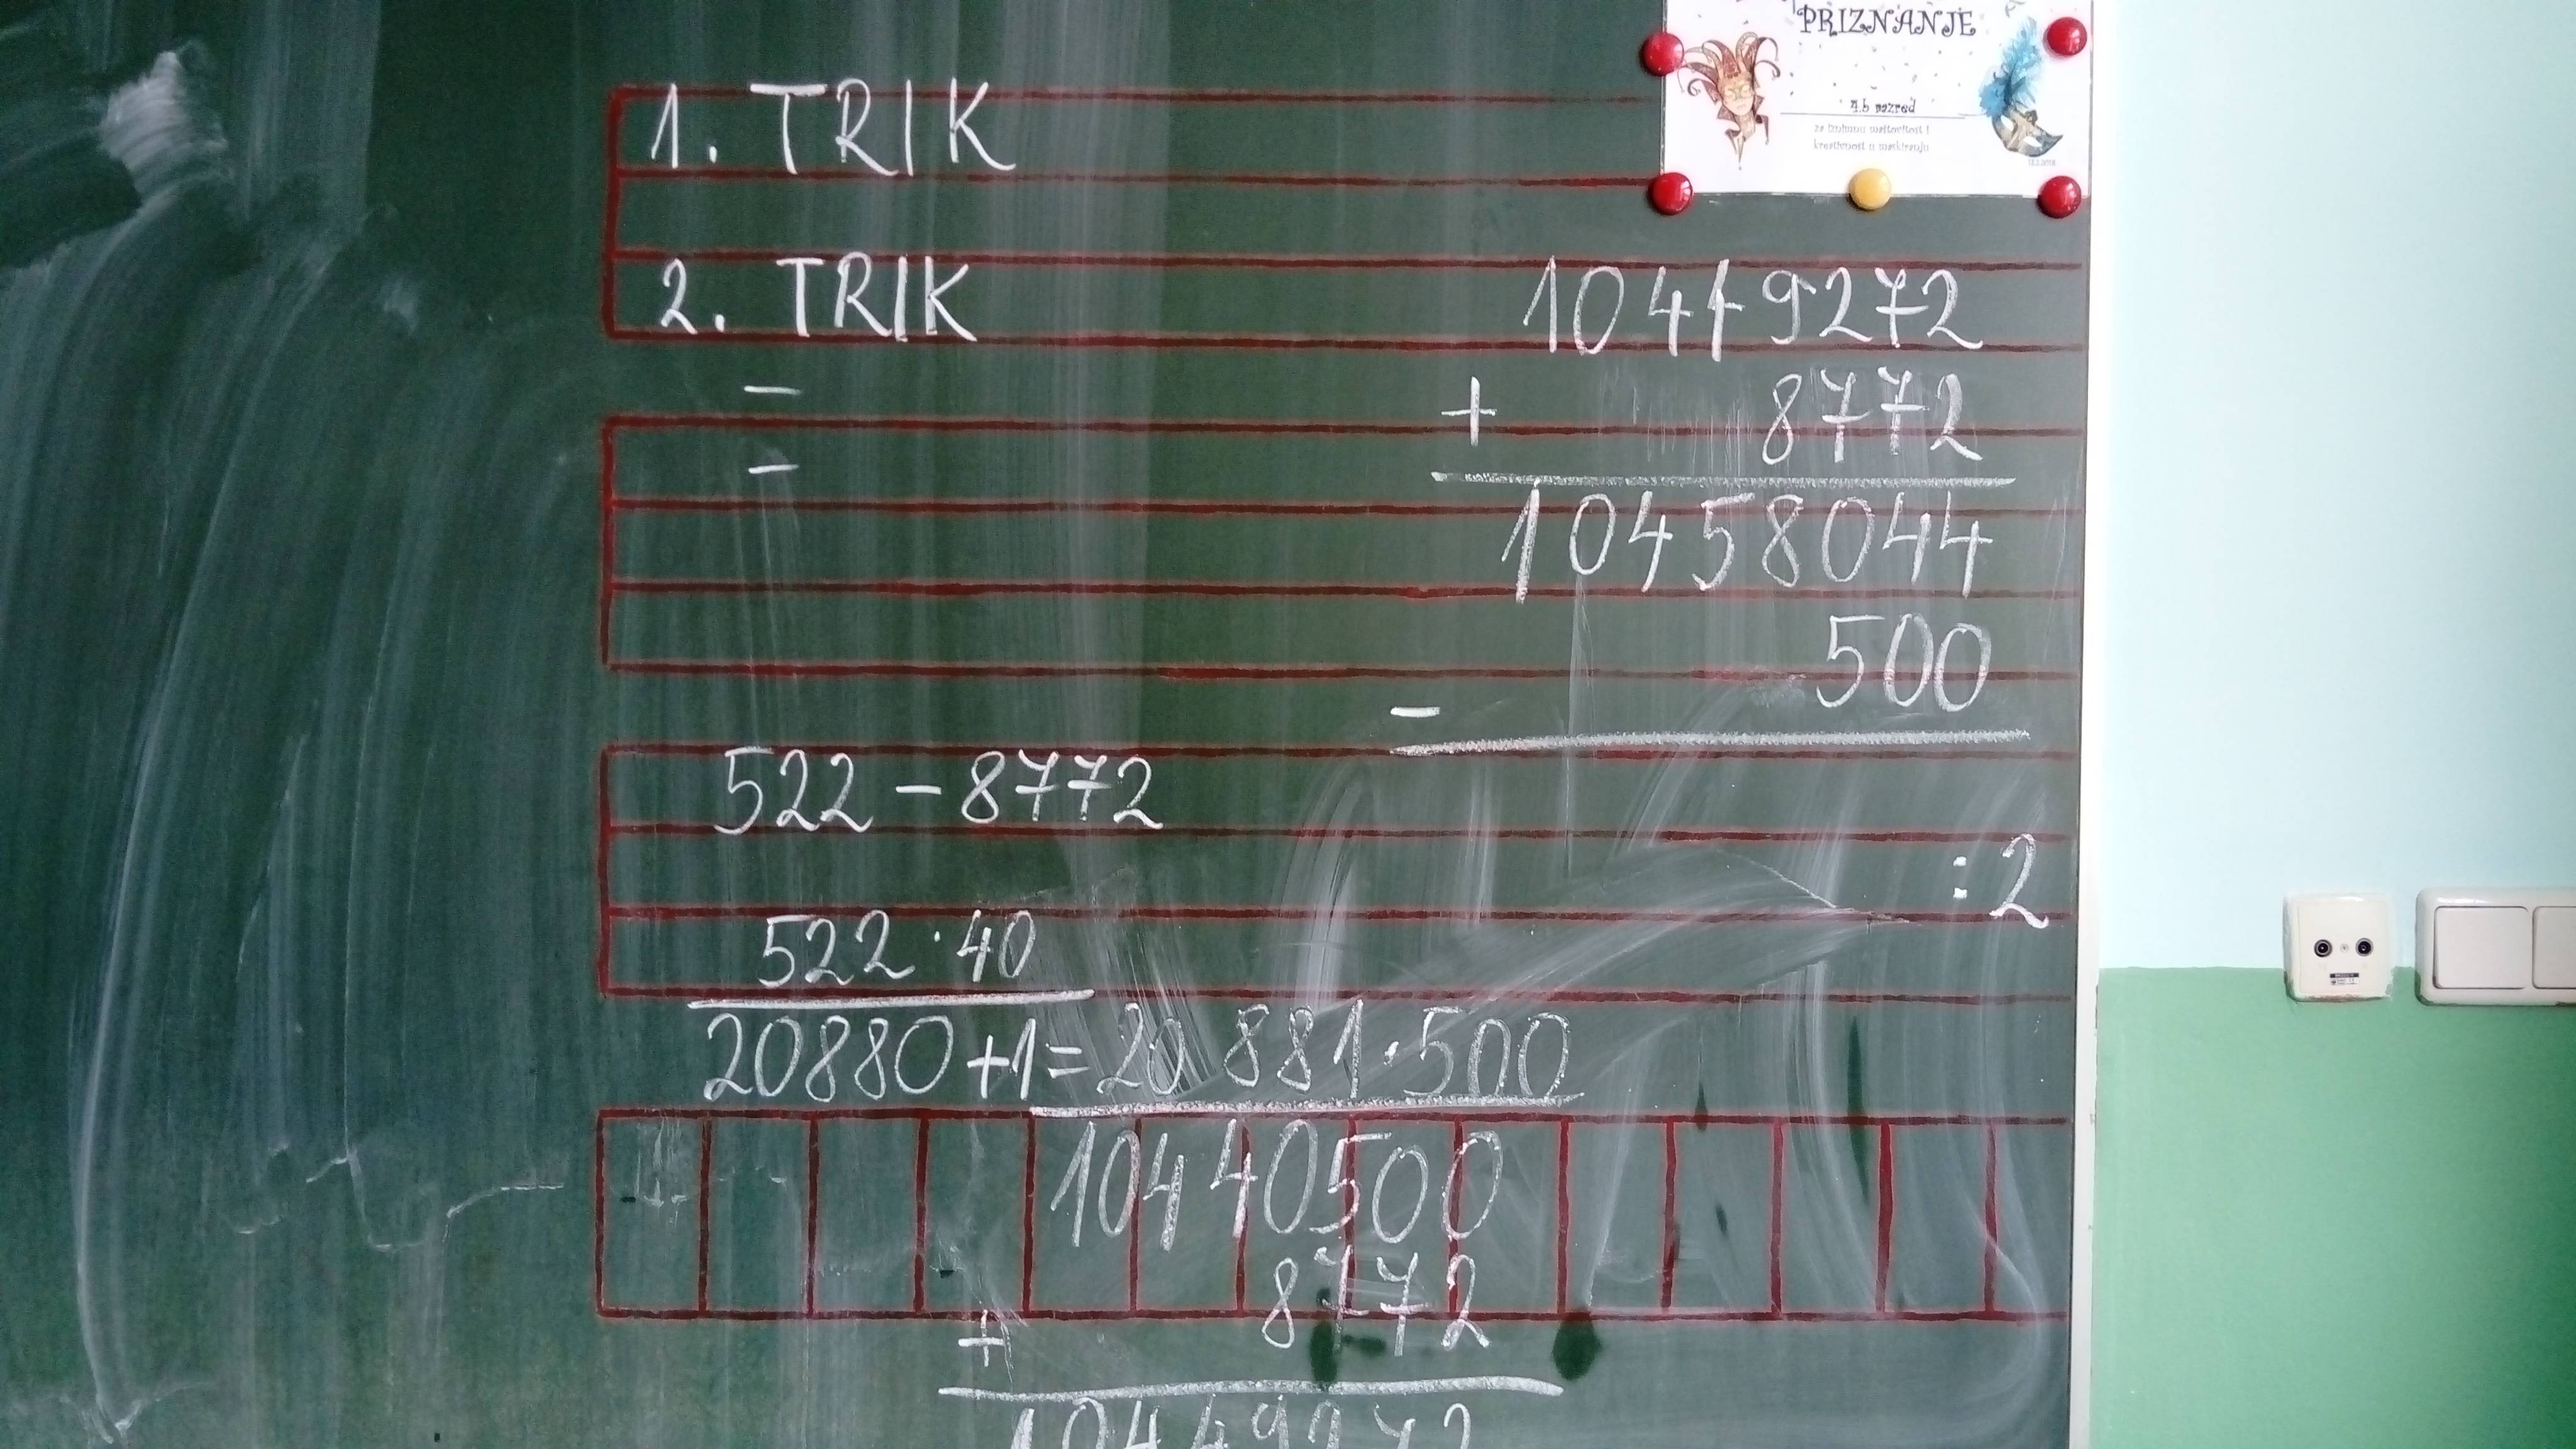 PRIZNANJE
4.b razred
za iznimnu maštovitost i
kreativnost u maskiranju
1. TRIK
2. TRIK
-
-
10449272
+ 8772
10458044
- 500
: 2
522 - 8772
522 · 40
20880 + 1 = 20881 · 500
10440500
+ 8772
10449272